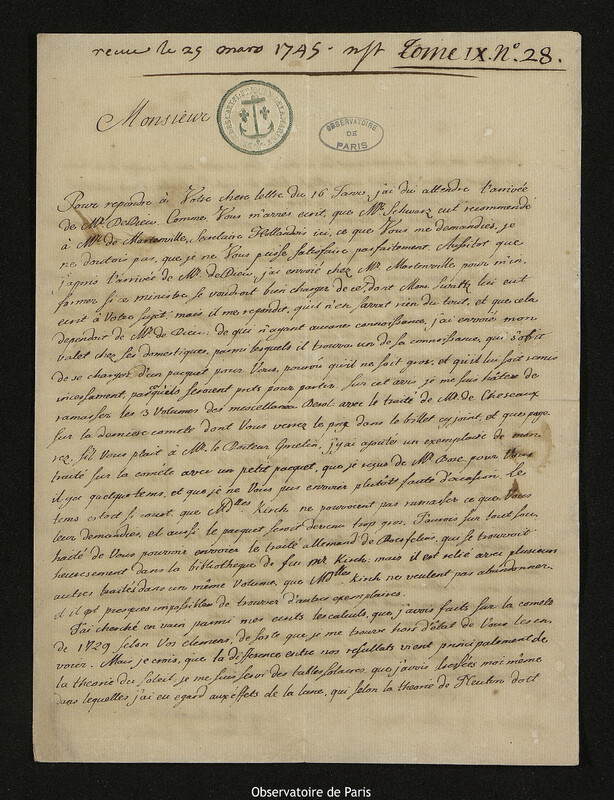 recue le 29 mars 1745. nst Tome IX. N.º 28.
Monsieur
OBSERVATOIRE
DE
PARIS
Pour repondre à Votre chere lettre du 16 Janv. j'ai du attendre l'arrivée
de Mr. DeDieu. Comme Vous m'aviés ecrit, que Mr. Schwarz eut recommendé
à Mr. de Martenville, Secretaire Hollandois ici, ce que Vous me demandiés, je
ne doutois pas, que je ne Vous puisse satisfaire parfaitement. Aussitot que
j'appris l'arrivée de Mr. de Dieu, j'ai envoié chez Mr. Martenville pour m'in
former si ce ministre se voudroit bien charger de ce, dont Mons. lui eut
ecrit à Votre sujet, mais il me repondit, qu'il n'en savoit rien du tout, et que cela
dependoit de Mr. de Dieu: de qui n'ayant aucune connoissance, j'ai envoié mon
valet chez ses domestiques, parmi lesquels il trouva un de sa connoissance, qui s'offrit
de se charger d'un pacquet pour Vous, pourvû qu'il ne soit gros, et qu'il lui soit remis
incessament, parcequ'ils seroient prets pour partir. Sur cet avis je me suis hâté de
ramasser les 3 Volumes des miscellanea Berol. avec le traité de Mr. de Cheseaux
sur la derniere comete dont Vous verrez le prix dans le billet cy joint, et que paye
rez, s'il Vous plait à Mr. le Pasteur Gmelin, j'y ai ajouté un exemplaire de mon
traité sur la comète avec un petit pacquet, que je reçus de Mr. Bose pour Vous
il y a quelque tems, et que je ne Vous pus envoier plutôt faute d'occasion. Le
tems etoit si court, que Mdlles Kirch ne pouvoient pas ramasser ce que Vous
leur demandiés, et aussi le pacquet seroit devenu trop gros. J'aurois sur tout sou
haité de Vous pouvoir envoier le traité allemand de, qui se trouvoit
heureusement dans la bibliotheque de feu Mr Kirch, mais il est relié avec plusieurs
autres traités dans un même volume, que Mdlles Kirch ne veulent pas abandonner.
et il est presque impossible de trouver d'autres exemplaires.
J'ai cherché en vain parmi mes ecrits les calculs, que j'avois faits sur la comete
de 1729 selon Vos elemens, de sorte que je me trouve hors d'état de Vous les en
voier. Mais je crois, que la difference entre nos resultats vient principalement de
la theorie du Soleil, je me suis servi des tables solaires, que j'avois dressées moi même
dans lequelles j'ai eu egard aux effets de la lune, qui selon la theorie de Neuton doit
Observatoire de Paris